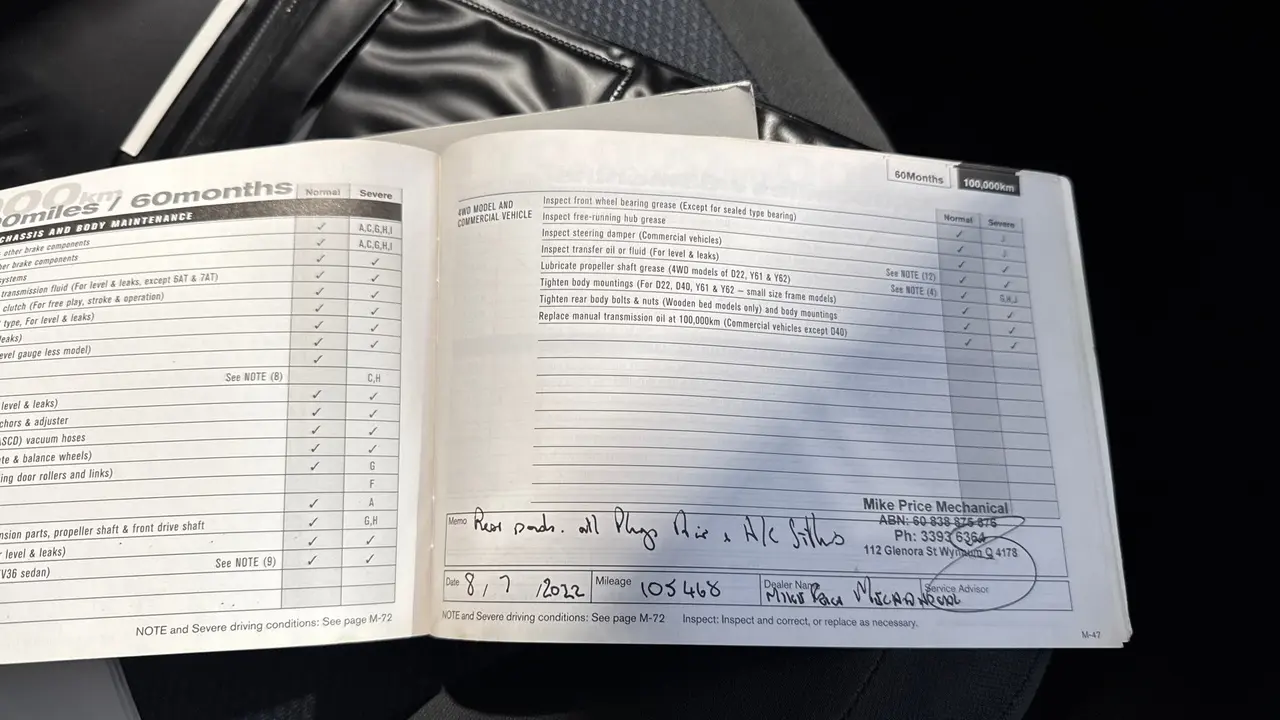 00km
0miles / 60months
Normal
Severe
CHASSIS AND BODY MAINTENANCE
other brake components ✓ A,C,G,H,I
her brake components ✓ A,C,G,H,I
systems ✓ ✓
transmission fluid (For level & leaks, except 6AT & 7AT) ✓ ✓
clutch (For free play, stroke & operation) ✓ ✓
type, For level & leaks) ✓ ✓
leaks) ✓ ✓
evel gauge less model) ✓
See NOTE (8) C,H
level & leaks) ✓ ✓
chors & adjuster ✓ ✓
ASCD) vacuum hoses ✓ ✓
te & balance wheels) ✓ ✓
ing door rollers and links) ✓ G
F
✓ A
nsion parts, propeller shaft & front drive shaft ✓ G,H
r level & leaks) ✓ ✓
V36 sedan) See NOTE (9) ✓ ✓
NOTE and Severe driving conditions: See page M-72
60Months
100,000km
4WD MODEL AND
COMMERCIAL VEHICLE
Normal
Severe
Inspect front wheel bearing grease (Except for sealed type bearing) ✓ J
Inspect free-running hub grease ✓ J
Inspect steering damper (Commercial vehicles) ✓ ✓
Inspect transfer oil or fluid (For level & leaks) See NOTE (12) ✓ ✓
Lubricate propeller shaft grease (4WD models of D22, Y61 & Y62) See NOTE (4) ✓ G,H,J
Tighten body mountings (For D22, D40, Y61 & Y62 – small size frame models) ✓ ✓
Tighten rear body bolts & nuts (Wooden bed models only) and body mountings ✓ ✓
Replace manual transmission oil at 100,000km (Commercial vehicles except D40) ✓ ✓
Mike Price Mechanical
ABN: 60 838 875 875
Ph: 3393 6364
112 Glenora St Wynnum Q 4178
Memo Rear pads. oil Plugs & A/C
Date 8/7/2022 Mileage 105468 Dealer Name Mike Price Mechanical Service Advisor
NOTE and Severe driving conditions: See page M-72 Inspect: Inspect and correct, or replace as necessary.
M-47